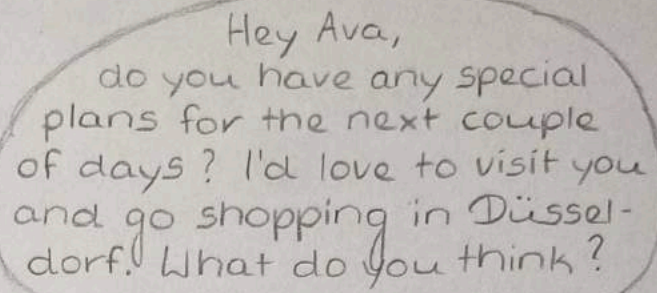 Hey Ava,
do you have any special
plans for the next couple
of days? I'd love to visit you
and go shopping in Düssel-
dorf. What do you think?